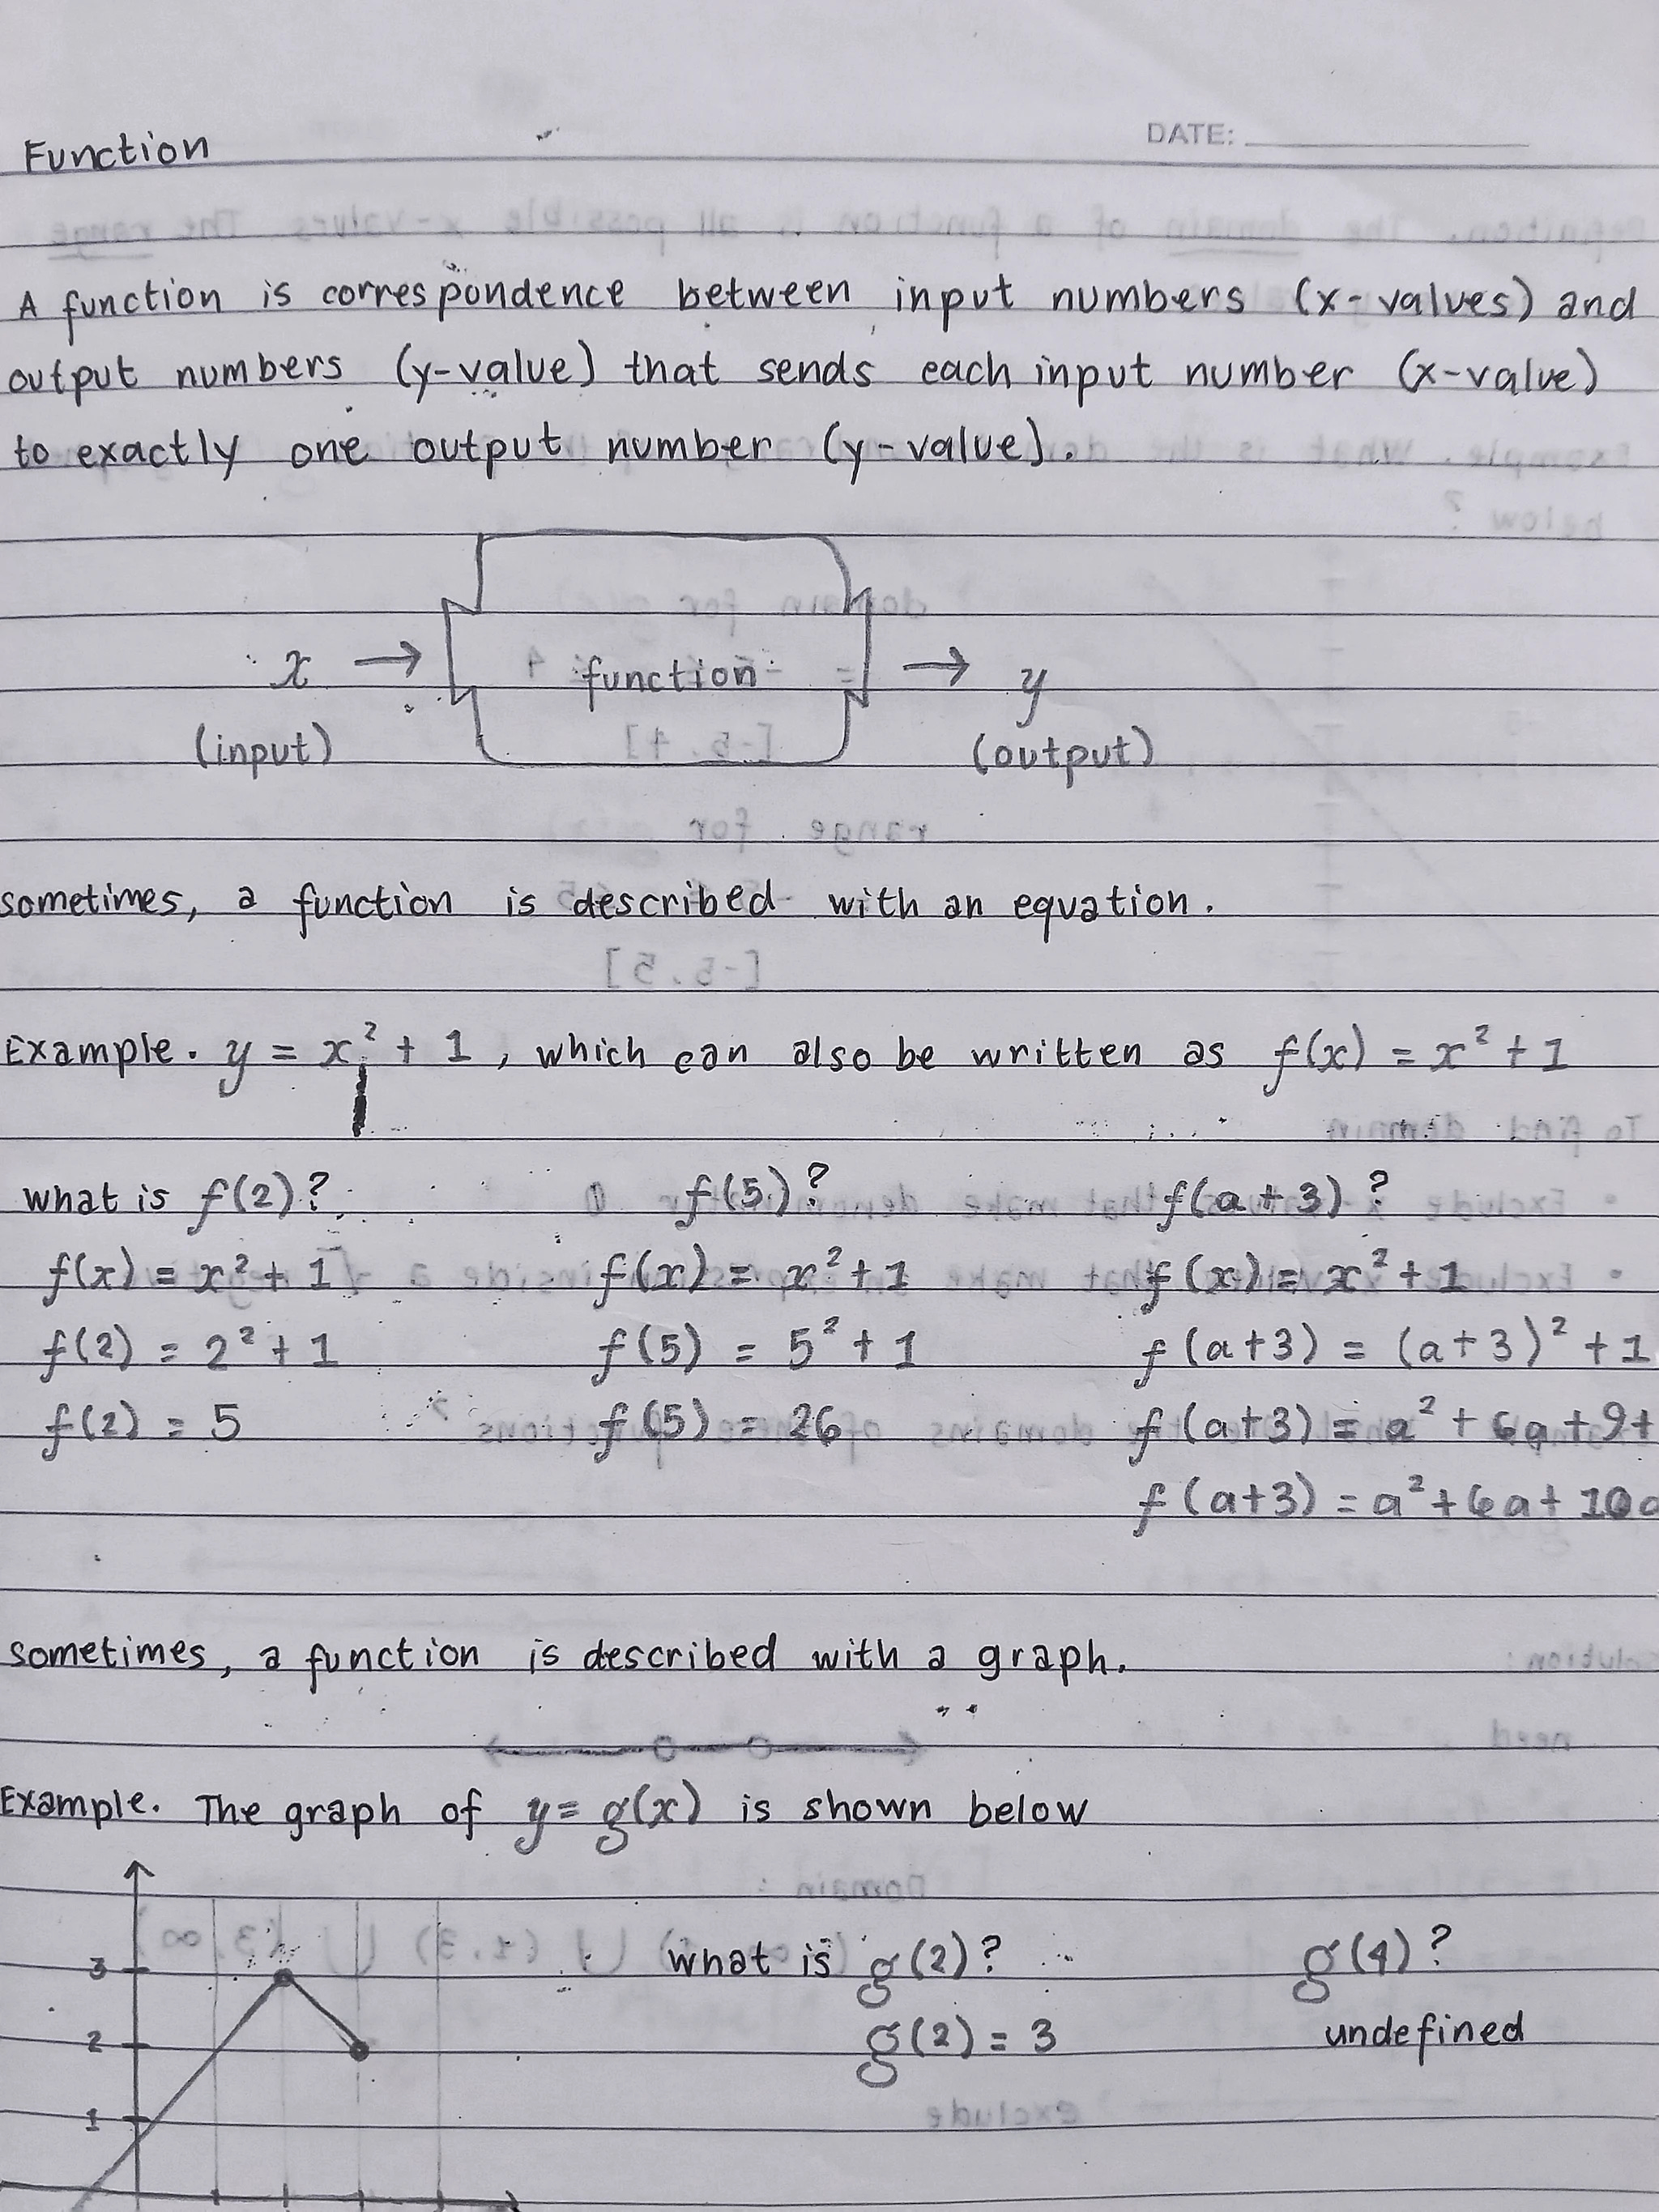 DATE:
Function
A function is correspondence between input numbers (x-values) and
output numbers (y-value) that sends each input number (x-value)
to exactly one output number (y-value).
x → function → y
(input) (output)
sometimes, a function is described with an equation.
Example. y = x² + 1, which can also be written as f(x) = x² + 1
what is f(2)? f(5)? f(a+3)?
f(x) = x² + 1 f(x) = x² + 1 f(x) = x² + 1
f(2) = 2² + 1 f(5) = 5² + 1 f(a+3) = (a+3)² + 1
f(2) = 5 f(5) = 26 f(a+3) = a² + 6a + 9 +
f(a+3) = a² + 6a + 10
sometimes, a function is described with a graph.
Example. The graph of y = g(x) is shown below
3 what is g(2)? g(4)?
2 g(2) = 3 undefined
1